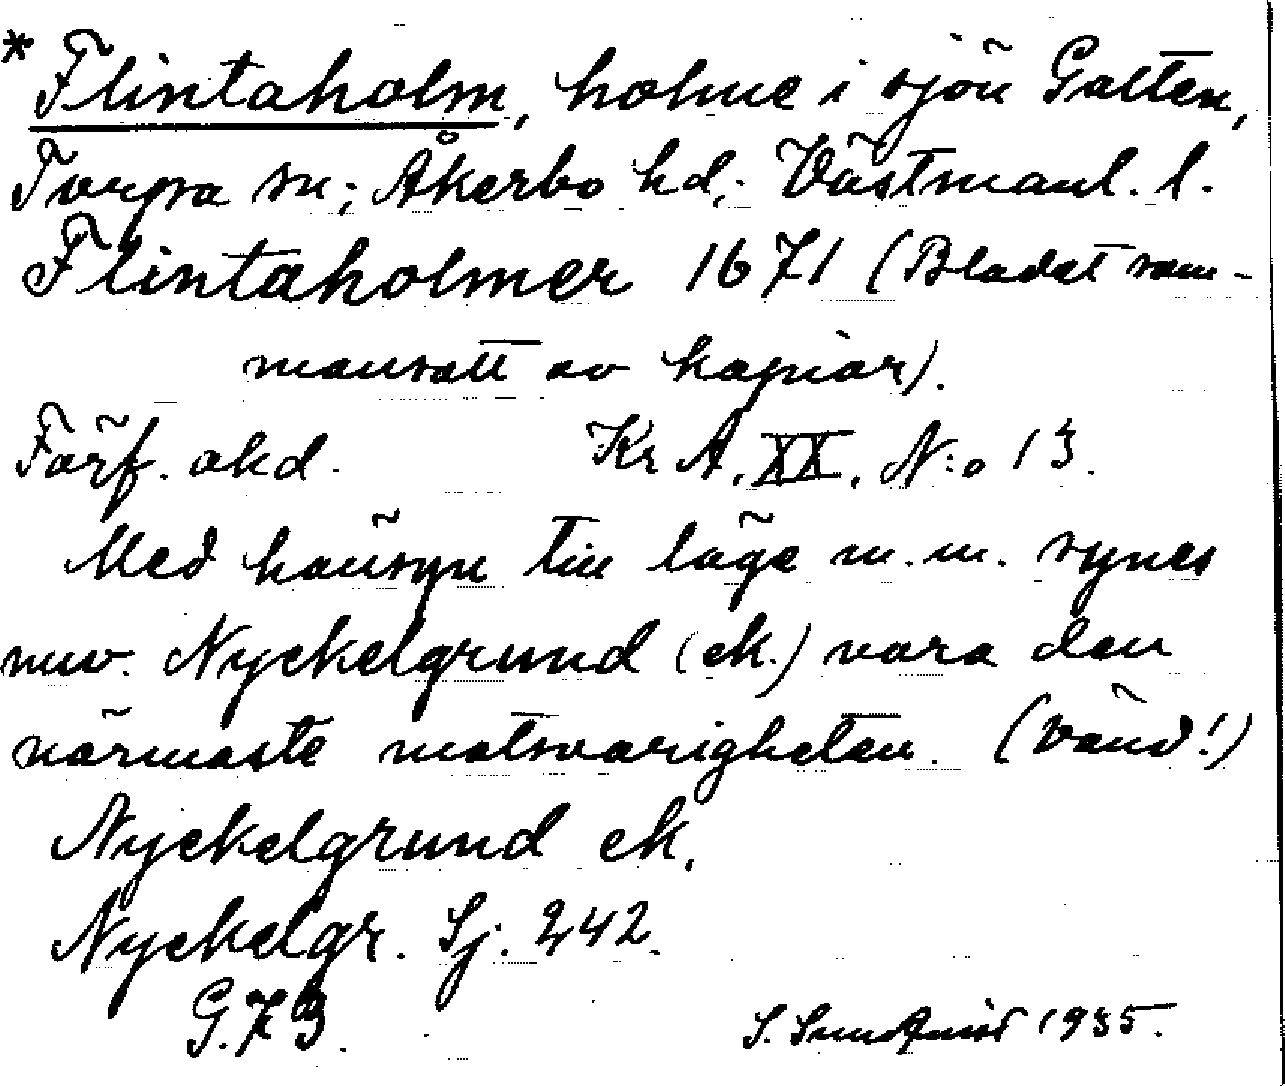 *Flintaholm, holme i sjön Galten,
Torpa sn; Åkerbo hd; Västmanl. l.
Flintaholmer 1671 (Bladet sam-
mansatt av kopior).
Förf. okd. Kr A. XX. N:o 13.
Med hänsyn till läge m.m. synes
nuv. Nyckelgrund (ek.) vara den
närmaste motsvarigheten. (Vänd!)
Nyckelgrund ek.
Nyckelgr. Sj. 242.
G.73.
S. Sundqvist 1935.